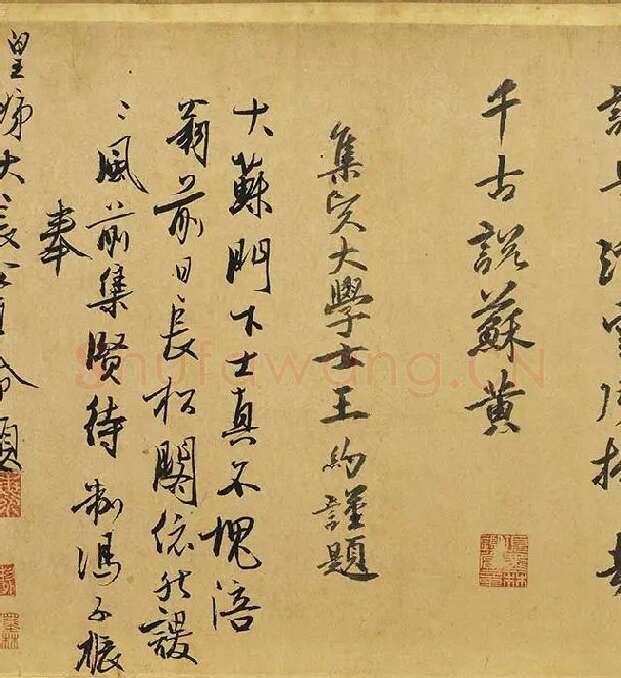 千古說蘇黃
集賢大學士王約謹題
大蘇門下士真不愧涪
翁前日長松閣依然謖
〻風前集賢待制馮子振
奉
皇姊大長公主命題
Shufawang.CN